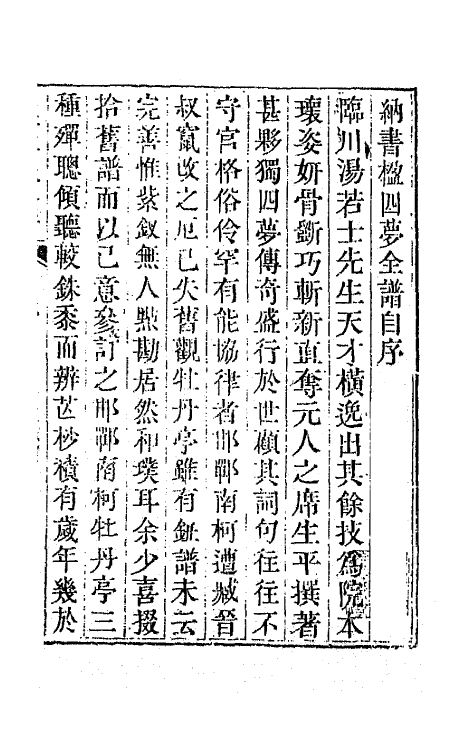 納書楹四夢全譜自序
臨川湯若士先生天才橫逸出其餘技爲院本
瓌姿妍骨斵巧斬新直奪元人之席生平撰著
甚夥獨四夢傳奇盛行於世顧其詞句往往不
守宮格俗伶罕有能協律者邯鄲南柯遭臧晉
叔竄改之厄已失舊觀牡丹亭雖有鈕譜未云
完善惟紫釵無人㸃勘居然和璞耳余少喜掇
拾舊譜而以己意參訂之邯鄲南柯牡丹亭三
種殫聰傾聽較銖黍而辨芒杪積有歲年幾於